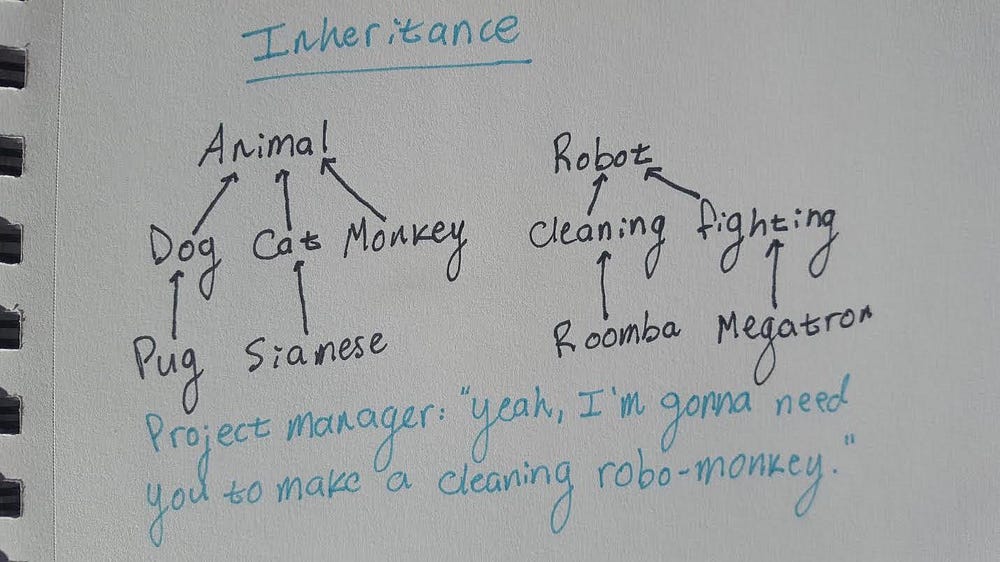 Inheritance
Animal
Robot
Dog Cat Monkey
cleaning fighting
Pug Sianese
Roomba Megatron
Project manager: "yeah, I'm gonna need
you to make a cleaning robo-monkey."